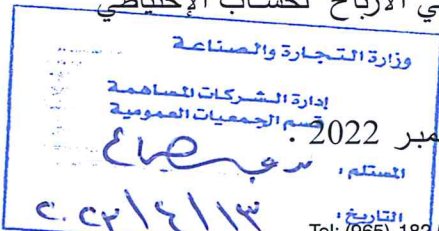 ي الأرباح لحساب الإحتياطي
وزارة التـجـارة والـصـنـاعـة
إدارة الـشـركـات المـساهـمـة
قسم الجمعيات العمومية
مبر 2022 .
المستلم :
التاريخ : ٢٠٢٣/٤/١٣
Tel: (965) 182